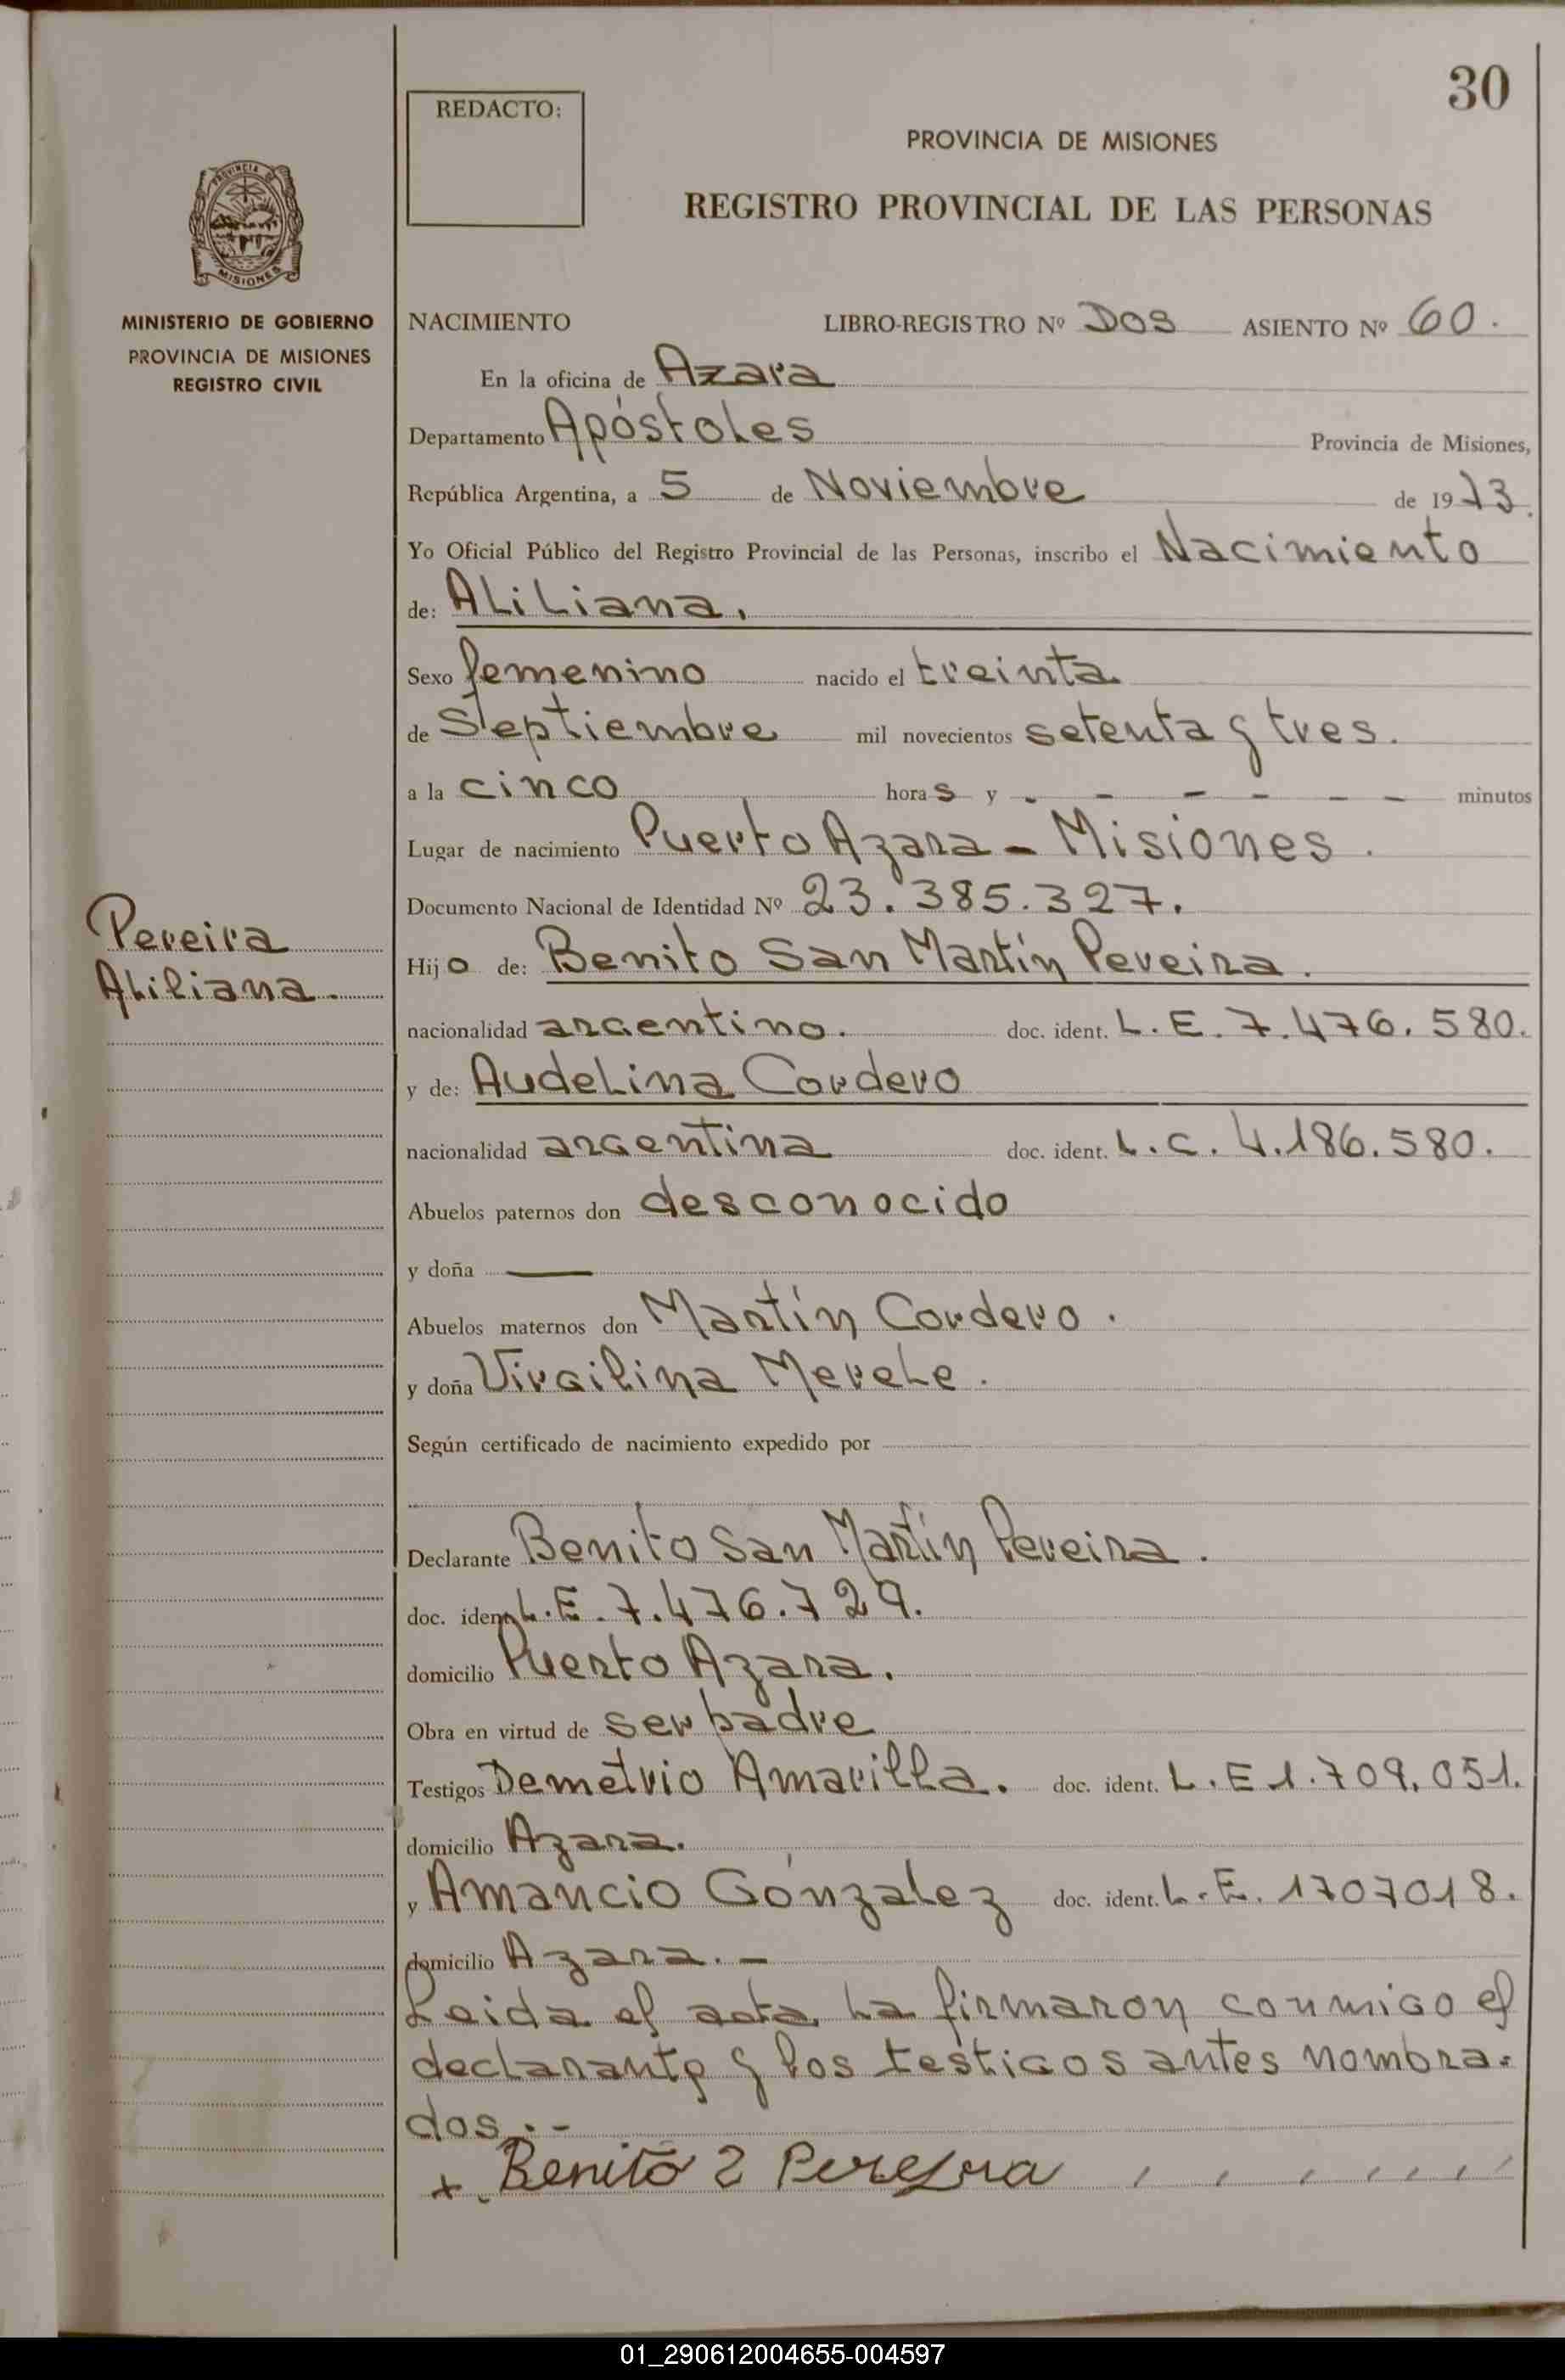 30
REDACTO:
PROVINCIA DE MISIONES
REGISTRO PROVINCIAL DE LAS PERSONAS
PROVINCIA DE
MISIONES
MINISTERIO DE GOBIERNO
PROVINCIA DE MISIONES
REGISTRO CIVIL
NACIMIENTO LIBRO-REGISTRO Nº Dos ASIENTO Nº 60.
En la oficina de Azara
Departamento Apóstoles Provincia de Misiones,
República Argentina, a 5 de Noviembre de 1973.
Yo Oficial Público del Registro Provincial de las Personas, inscribo el Nacimiento
de: Aliliana.
Sexo femenino nacido el treinta
de Septiembre mil novecientos setenta y tres.
a la cinco horas y - - - - - - minutos
Lugar de nacimiento Puerto Azara - Misiones.
Documento Nacional de Identidad Nº 23.385.327.
Pereira
Aliliana.
Hijo de: Benito San Martín Pereira.
nacionalidad argentino. doc. ident. L.E. 7.476.580.
y de: Audelina Cordero
nacionalidad argentina doc. ident. L.C. 4.186.580.
Abuelos paternos don desconocido
y doña —
Abuelos maternos don Martín Cordero.
y doña Virgilina Merele.
Según certificado de nacimiento expedido por
Declarante Benito San Martín Pereira.
doc. ident. L.E. 7.476.729.
domicilio Puerto Azara.
Obra en virtud de ser padre
Testigos Demetrio Amarilla. doc. ident. L.E 1.709.051.
domicilio Azara.
y Amancio Gónzalez doc. ident. L.E. 1707018.
domicilio Azara.-
Leida el acta la firmaron conmigo el
declarante y los testigos antes nombra=
dos.-
+ Benito 2 Pereyra
01_290612004655-004597